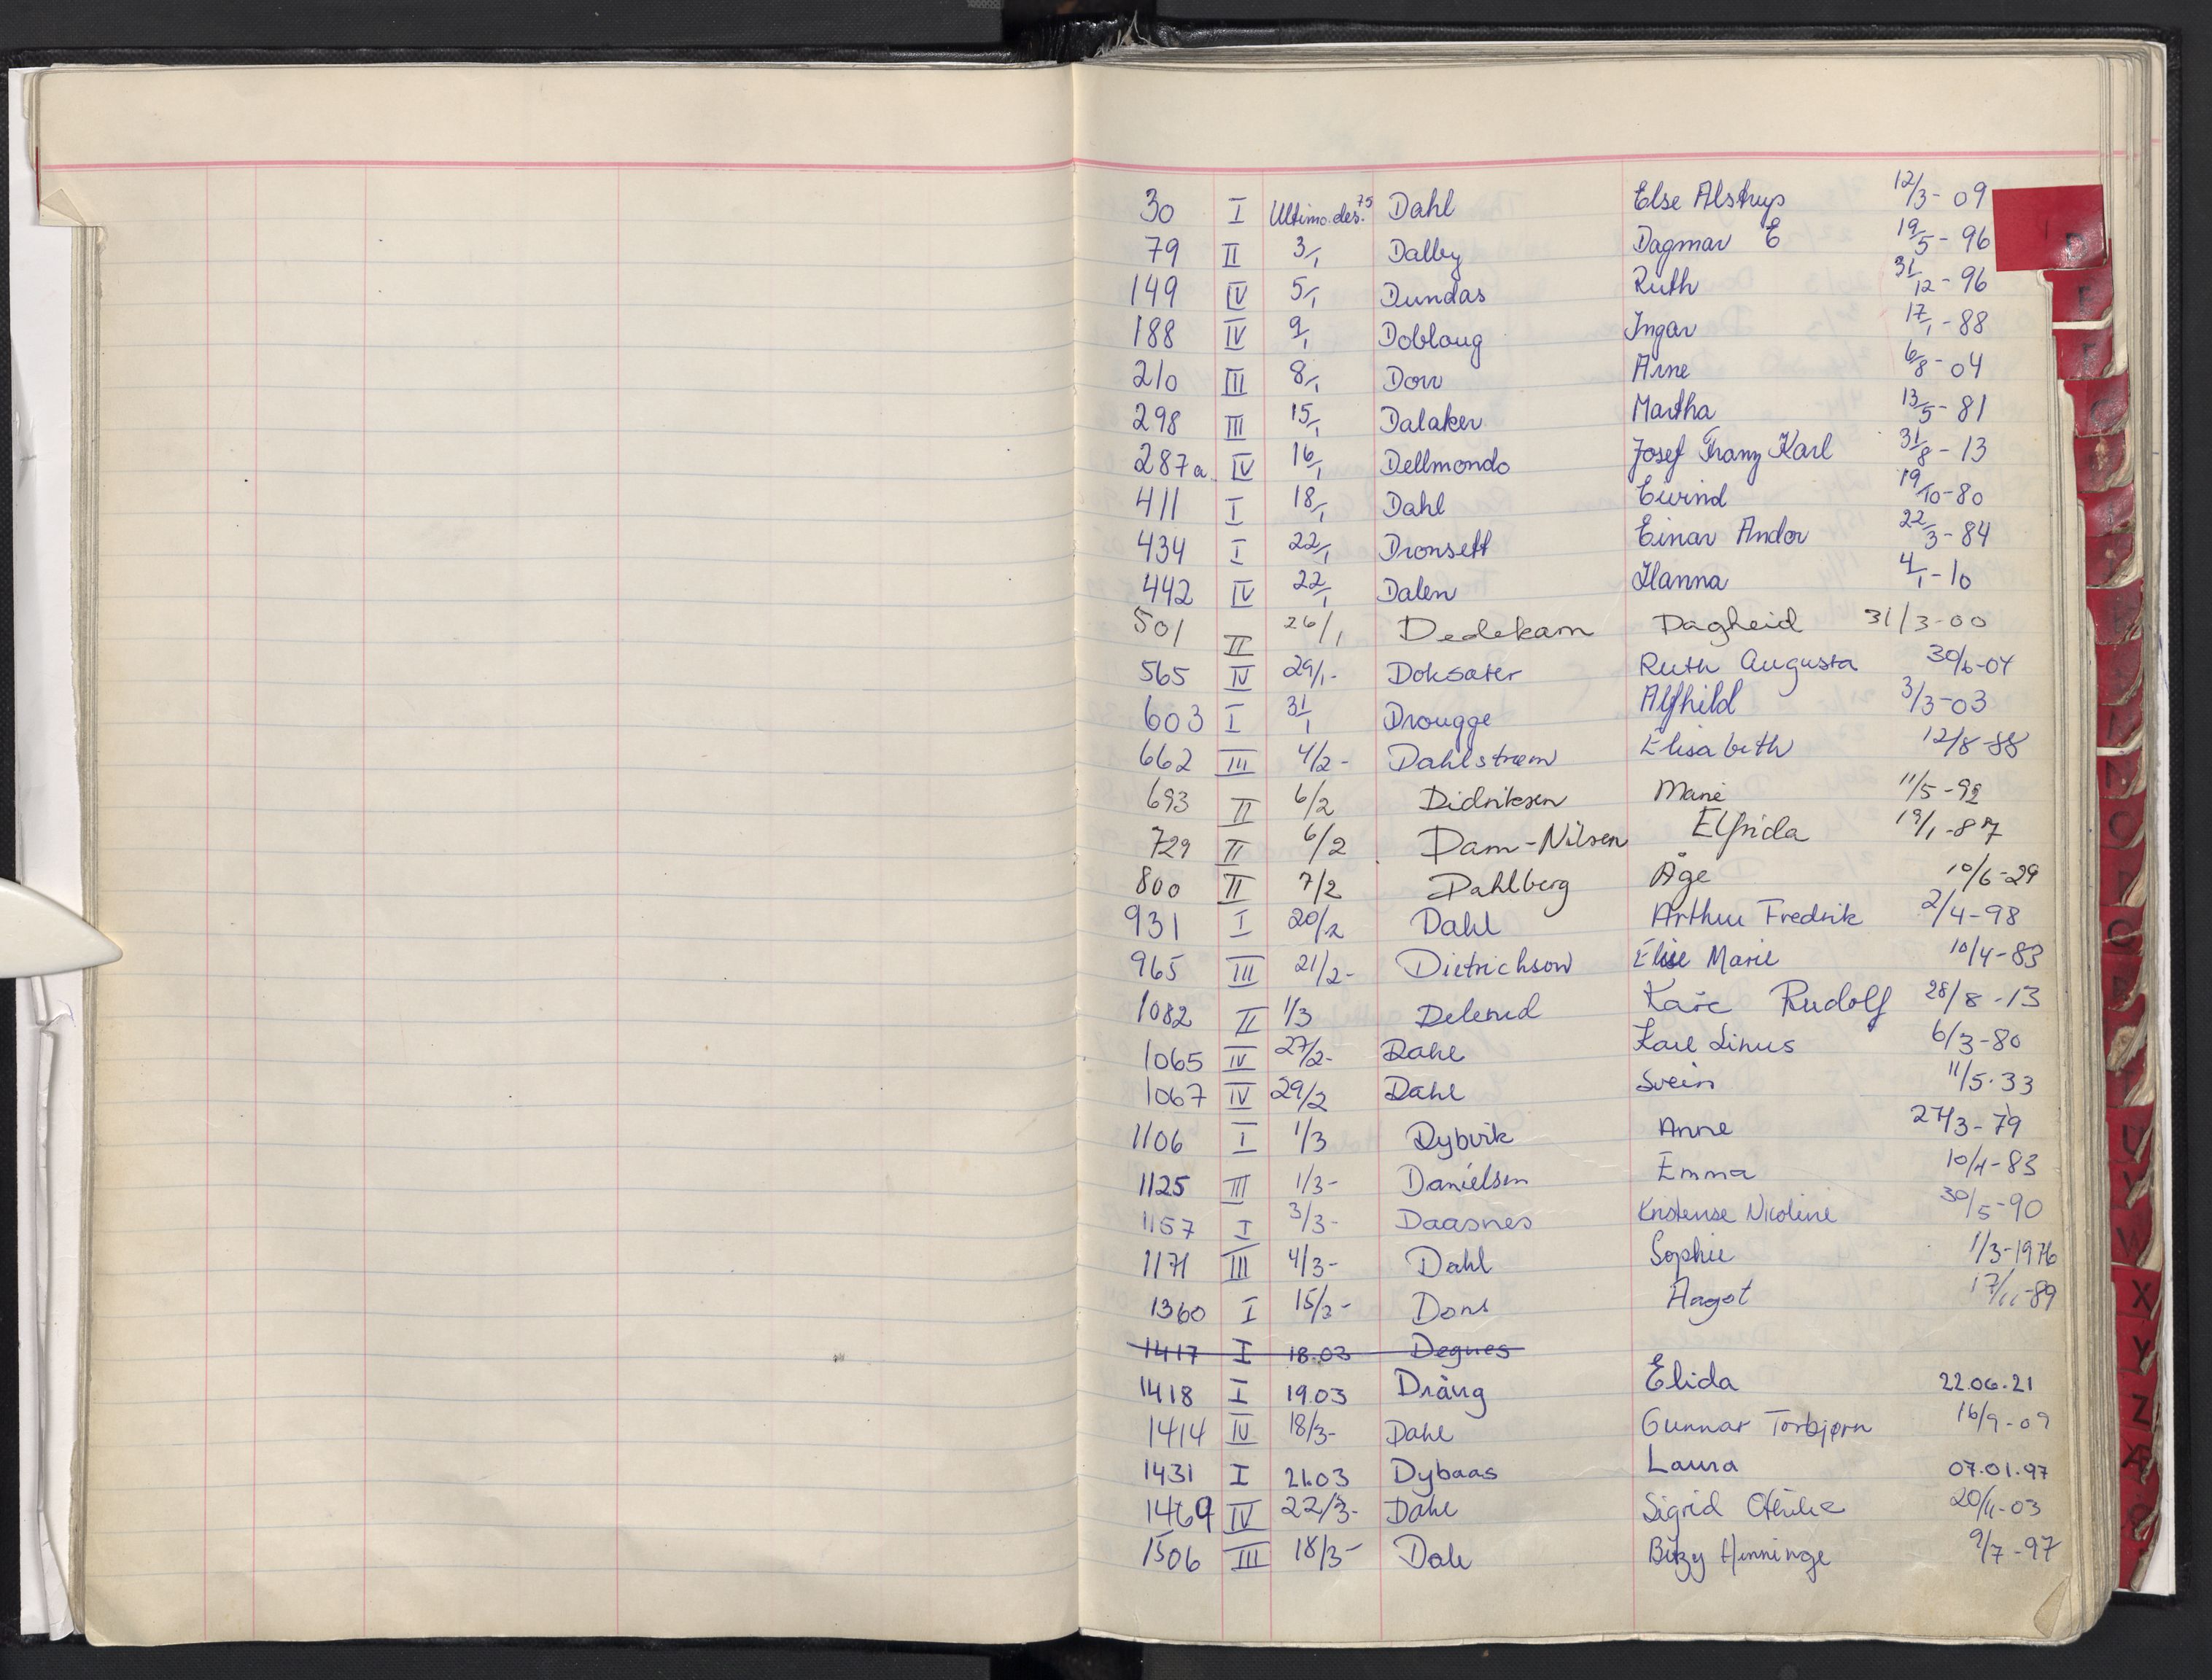 30 I Ultimo des. 75 Dahl Else Alstrup 12/3-09
79 II 3/1 Dalby Dagmar E 19/5-96
149 IV 5/1 Dundas Ruth 31/12-96
188 IV 9/1 Dobloug Ingar 17/1-88
210 III 8/1 Dorr Arne 6/8-04
298 III 15/1 Dalaker Martha 13/5-81
287a IV 16/1 Dellmondo Josef Franz Karl 31/8-13
411 I 18/1 Dahl Eivind 19/10-80
434 I 22/1 Dronsett Einar Andor 22/3-84
442 IV 22/1 Dalen Hanna 4/1-10
501 II 26/1 Dedekam Dagheid 31/3-00
565 IV 29/1- Doksater Ruth Augusta 30/6-04
603 I 31/1 Drougge Alfhild 3/3-03
662 III 4/2- Dahlstrøm Elisabeth 12/8-88
693 II 6/2 Didriksen Marie 11/5-92
729 II 6/2 Dam-Nilsen Elfrida 19/1-87
800 II 7/2 Dahlberg Åge 10/6-29
931 I 20/2 Dahl Arthur Fredrik 2/4-98
965 III 21/2- Dietrichson Elise Marie 10/4-83
1082 II 1/3 Delerud Rudolf 28/8-13
1065 IV 27/2- Dahl Karl Linus 6/3-80
1067 IV 29/2 Dahl Svein 11/5.33
1106 I 1/3 Dybvik Anne 27/3-79
1125 III 1/3- Danielsen Emma 10/4-83
1157 I 3/3- Daasnes Kristense Nicoline 30/5-90
1171 III 4/3- Dahl Sophie 1/3-1976
1360 I 15/3- Dons Aagot 17/11-89
1417 I 18.03 Degnes
1418 I 19.03 Dräng Elida 22.06.21
1414 IV 18/3- Dahl Gunnar Torbjørn 16/9-09
1431 I 21.03 Dybaas Laura 07.01.97
1469 IV 22/3- Dahl Sigrid Othilie 20/11-03
1506 III 18/3- Dahl Henninge 9/7-97
D
E
F
G
M
O
P
Q
R
U
V
W
X
Y
Z